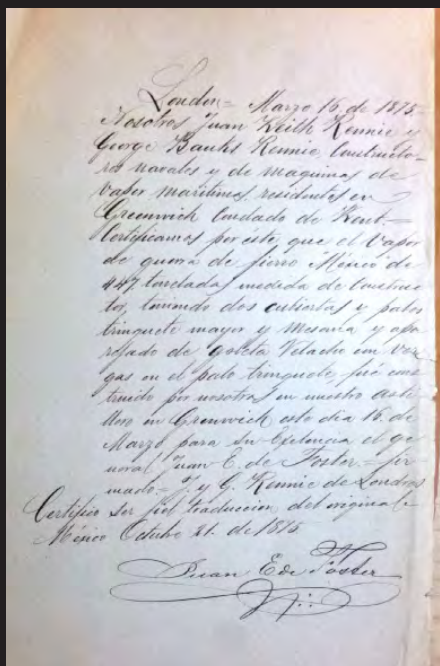 London = Marzo 16 de 1875 =
Nosotros Juan Keith Rennie y
George Banks Rennie Constructo-
res navales y de maquinas de
vapor maritimas, residentes en
Greenwich Condado de Kent =
Certificamos por éste, que el Vapor
de guerra de fierro México de
447 toneladas medida de Construc
tor, teniendo dos cubiertas y palos
trinquete mayor y Mesana y apa
rejado de goleta Velacho con Ver
gas en el palo trinquete, fué cons
truido por nosotros en nuestro Asti
llero in Greenwich este dia 16 de
Marzo para Su Exelencia el ge
neral Juan E. de Foster = fir
mado = J. y G. Rennie de Londres
Certifico ser fiel traduccion del original =
México Octubre 21 de 1875
Juan E de Foster